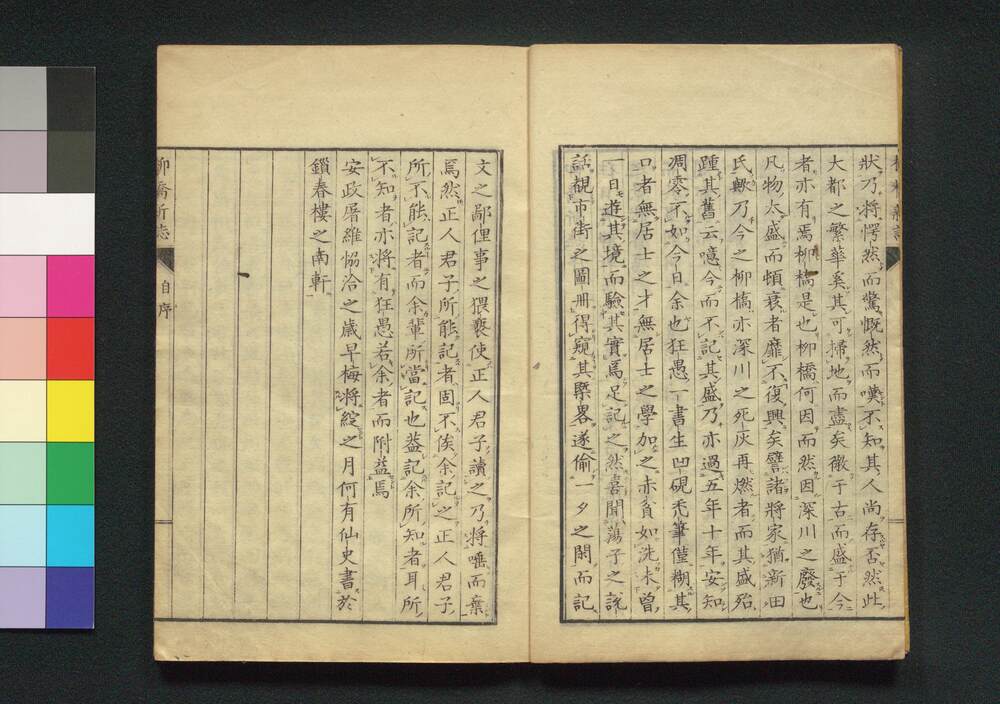 狀乃將愕然而驚慨然而嘆不知其人尚存否然此
大都之繁華奚其可掃地而盡矣徵于古而盛于今
者亦有焉柳橋是也柳橋何因而然因深川之廢也
凡物太盛而頓衰者靡不復興矣譬諸將家猶新田
氏歟乃今之柳橋亦深川之死灰再燃者而其盛殆
踵其舊云噫今而不記其盛乃亦過五年十年安知
凋零不如今日余也狂愚一書生凹硯禿筆僅糊其
口者無居士之才無居士之學加之赤貧如洗未曾
一日遊其境而驗其實焉足記之然喜聞蕩子之說
話覩市街之圖冊得窺其槩畧遂偷一夕之閑而記
文之鄙俚事之猥褻使正人君子讀之乃將唾而棄
焉然正人君子所能記者固不俟余記之正人君子
所不能記者而余輩所當記也葢記余所知者耳所
不知者亦將有狂愚若余者而附益焉
安政屠維恊洽之歲早梅將綻之月何有仙史書於
鎖春樓之南軒
柳橋新志
自序